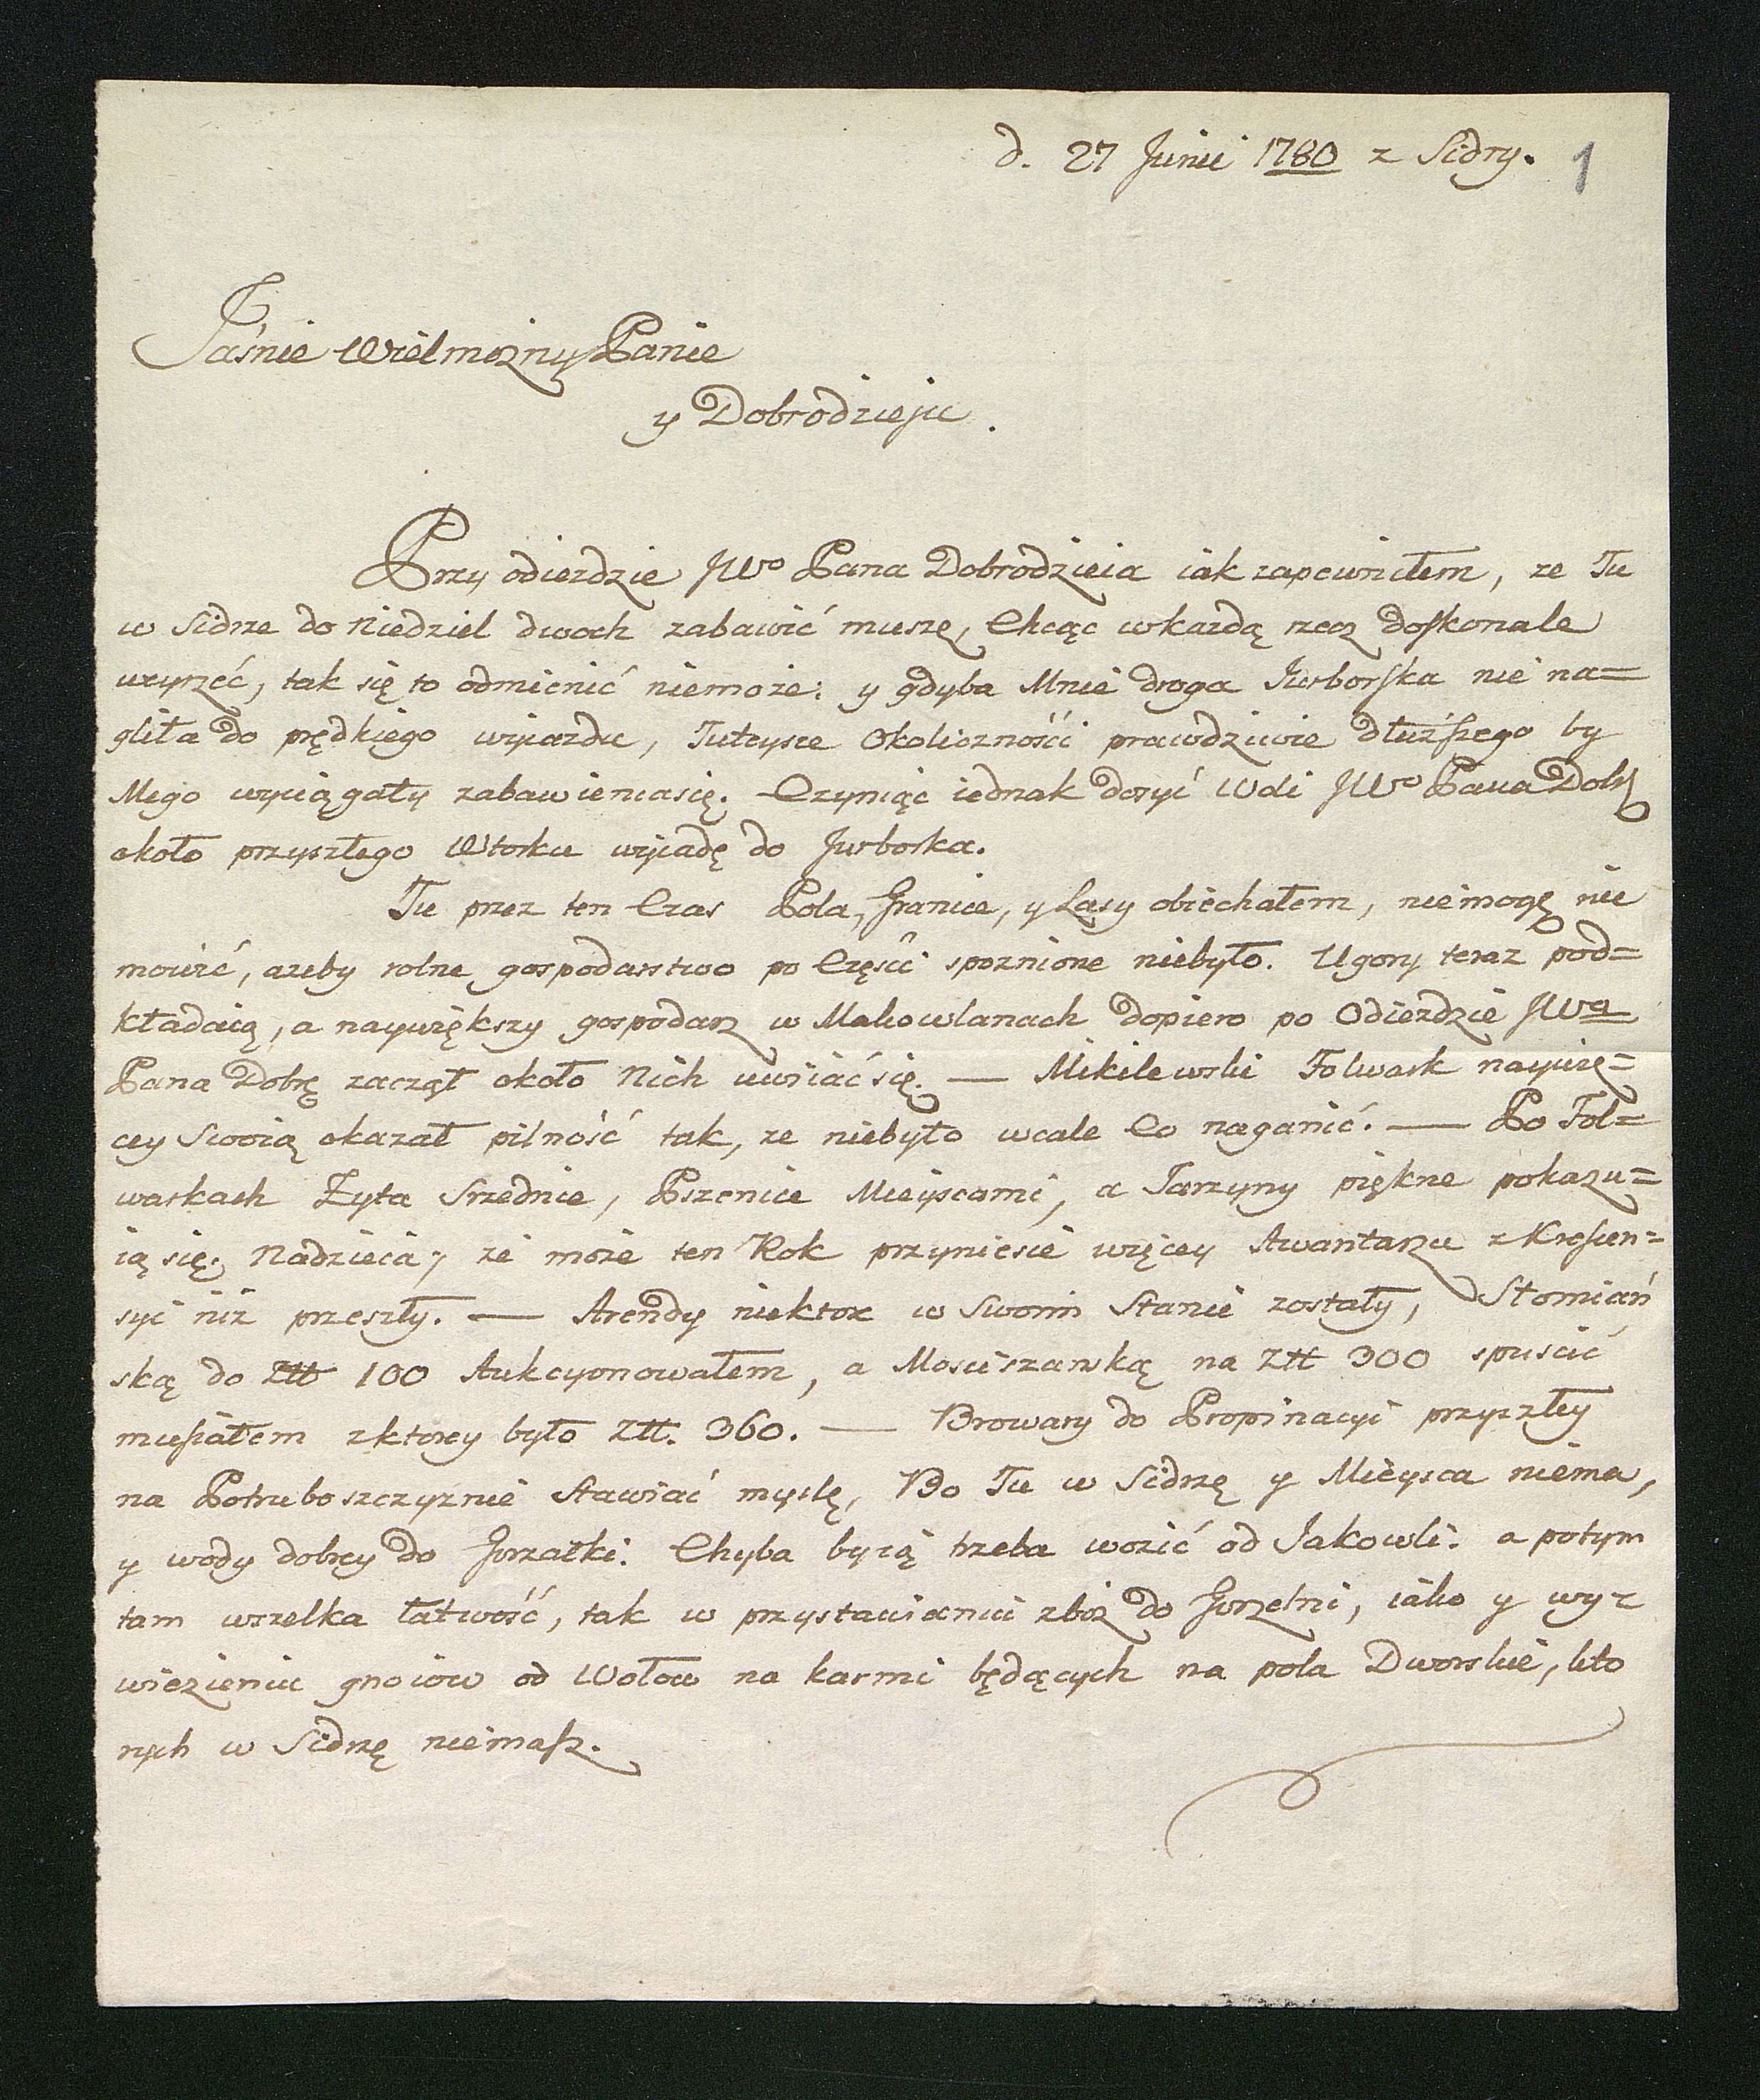 d. 27 Junii 1780 z Sidry. 1
Jaśnie Wielmożny Panie
y Dobrodzieju.
Przy odiezdzie JWo Pana Dobrodzieia iak zapewniłem, ze Tu
w Sidrze do Niedziel dwoch zabawić muszę, Chcąc wkazdą rzecz doskonale
weyrzeć, tak się to odmienić niemoze: y gdyba Mnie droga Jurborska nie na=
gliła do prędkiego wyiazdu, Tuteysze Okolicznośći prawdziwie dłuższego by
Mego wyciągały zabawieniasię. Czyniąc iednak dosyć Woli JWo Pana Dobr
około przyszłego Wtorku wyiadę do Jurborka.
Tu przez ten Czas Pola, Granice, y Lasy obiechałem, niemogę nie
mowić, azeby rolne gospodarstwo po Częsci spoznione niebyło. Ugory teraz pod=
kładaią, a naywiększy gospodarz w Makowlanach dopiero po Odiezdzie JWa
Pana Dobrę zaczął około Nich uwiiać się. — Mikilewski Folwark naywię=
cey Swoią okazał pilność tak, ze niebyło wcale Co naganić. — Po Fol=
warkach Zyta Srzednie, Pszenice Mieyscami, a Jarzyny piękne pokazu=
ią się. Nadzieia, ze moze ten Rok przyniesie więcey Awantazu z Krescen=
syi niz przeszły. — Arendy niektore w Swoim Stanie zostały, Słomiań
ską do Ztt 100 Aukcyonowałem, a Mosciszanską na Ztt 300 spuścić
musiałem z ktorey było Ztt. 360. — Browary do Propinacyi przyszłey
na Potruboszczyznie Stawiać myslę, Bo Tu w Sidrzę y Mieysca niema,
y wody dobrey do Gorzałki. Chyba by ią trzeba wozić od Jakowli. a potym
tam wszelka łatwość, tak w przystawianiu zboz do Gorzelni, iako y wy=
wiezieniu gnoiow od Wołow na karmi będących na pola Dworskie, kto
rych w Sidrzę niemasz.